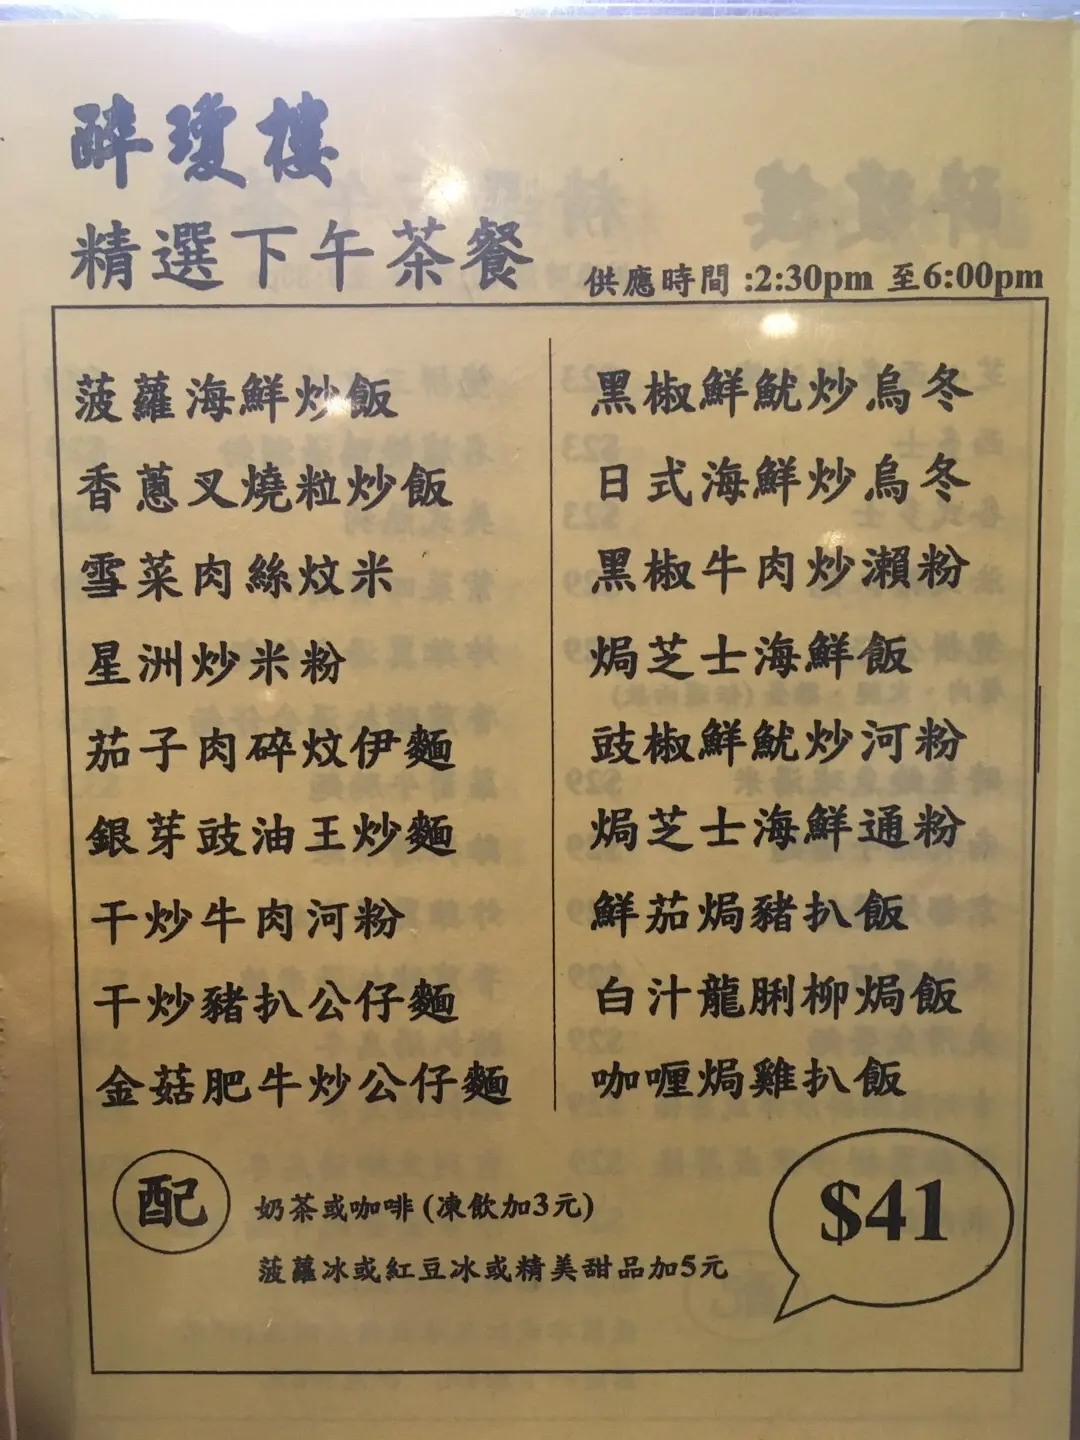 醉瓊樓
精選下午茶餐
供應時間 :2:30pm 至6:00pm
菠蘿海鮮炒飯
香蔥叉燒粒炒飯
雪菜肉絲炆米
星洲炒米粉
茄子肉碎炆伊麵
銀芽豉油王炒麵
干炒牛肉河粉
干炒豬扒公仔麵
金菇肥牛炒公仔麵
黑椒鮮魷炒烏冬
日式海鮮炒烏冬
黑椒牛肉炒瀨粉
焗芝士海鮮飯
豉椒鮮魷炒河粉
焗芝士海鮮通粉
鮮茄焗豬扒飯
白汁龍脷柳焗飯
咖喱焗雞扒飯
配
奶茶或咖啡 (凍飲加3元)
菠蘿冰或紅豆冰或精美甜品加5元
$41